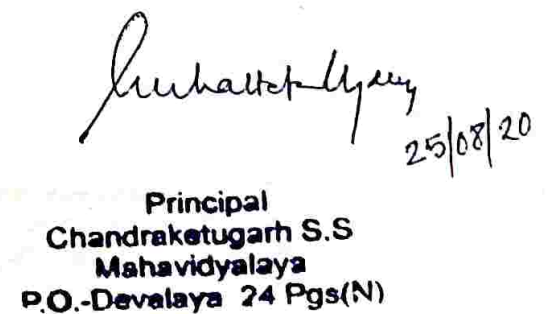 25/08/20
Principal
Chandraketugarh S.S
Mahavidyalaya
P.O.-Devalaya 24 Pgs(N)